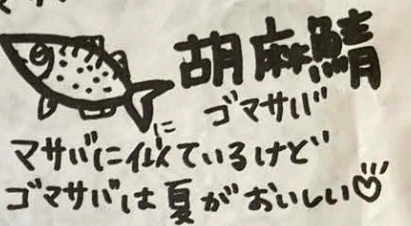 胡麻鯖
ゴマサバ
マサバに似ているけど
ゴマサバは夏がおいしい